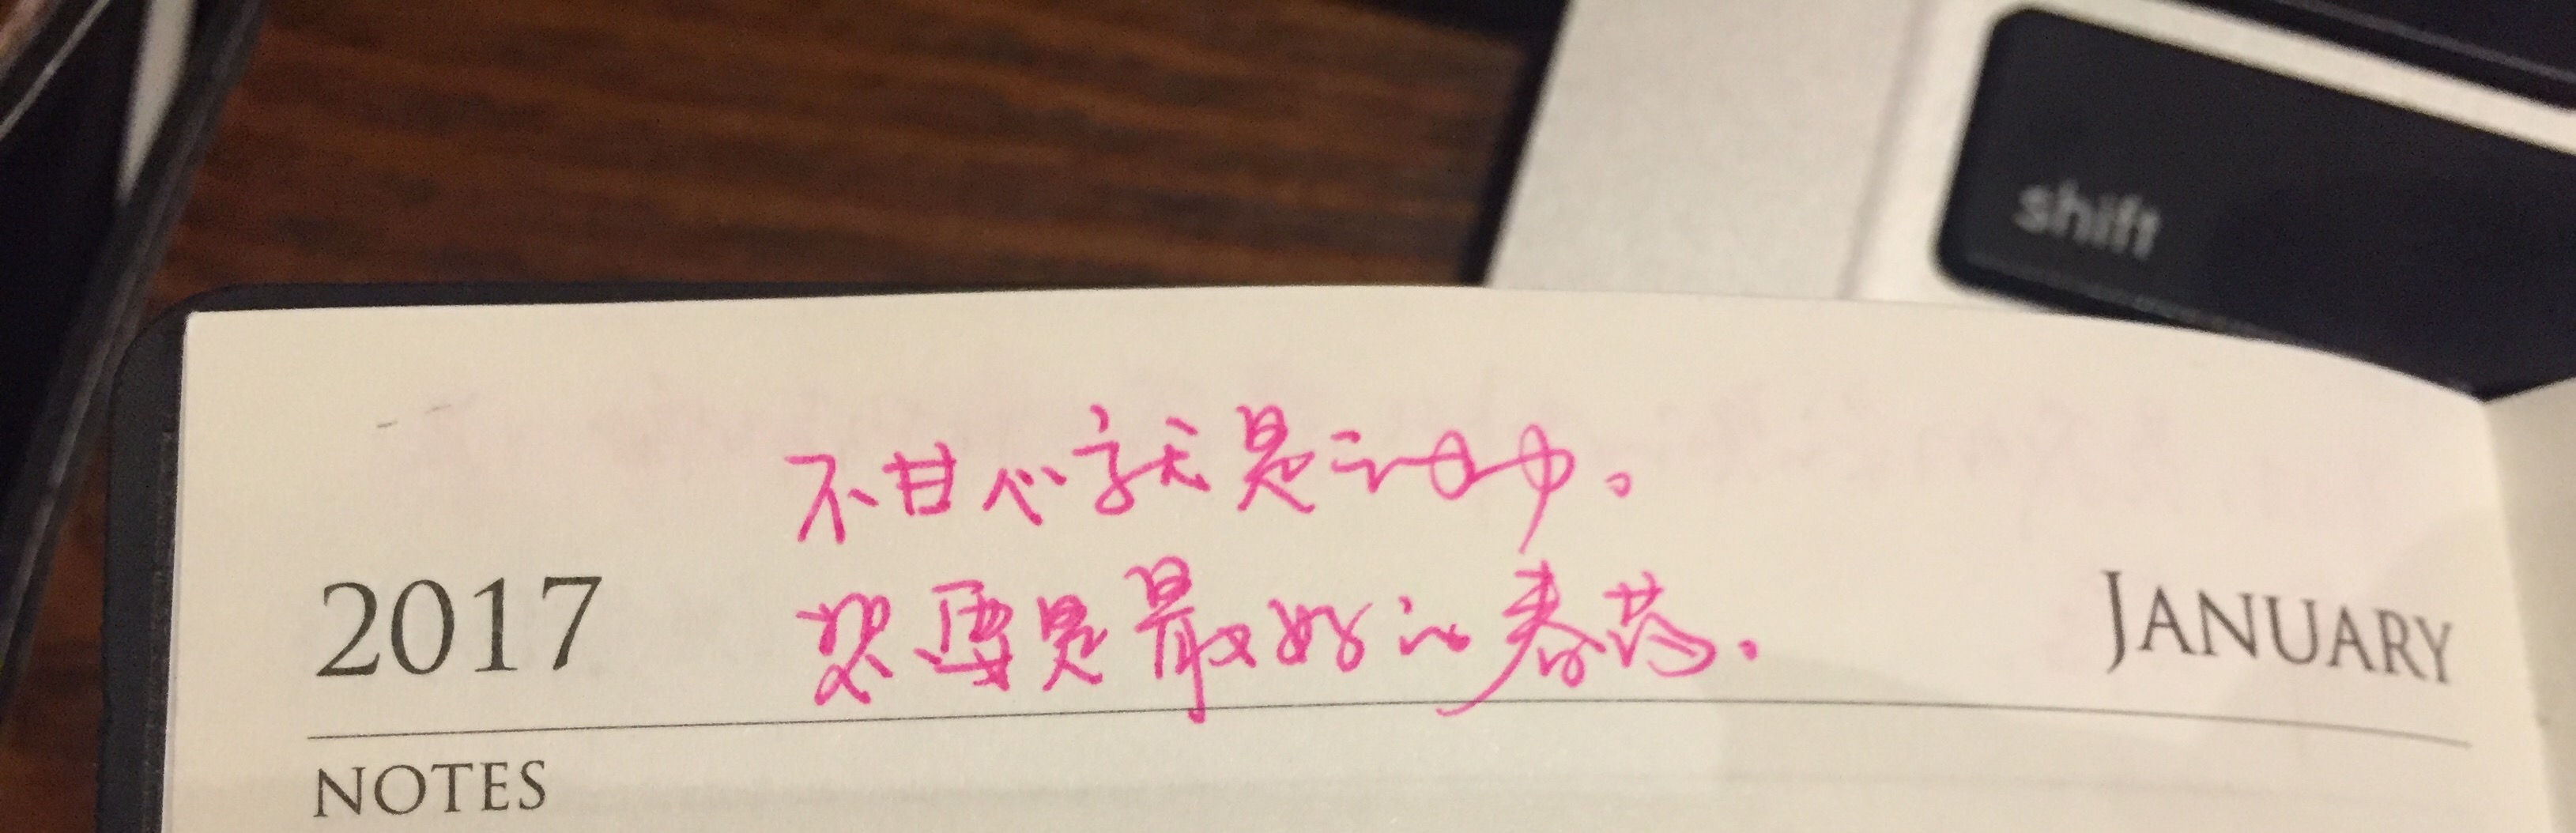 shift
不甘心就是动力。
想要是最好的春药.
2017
JANUARY
NOTES